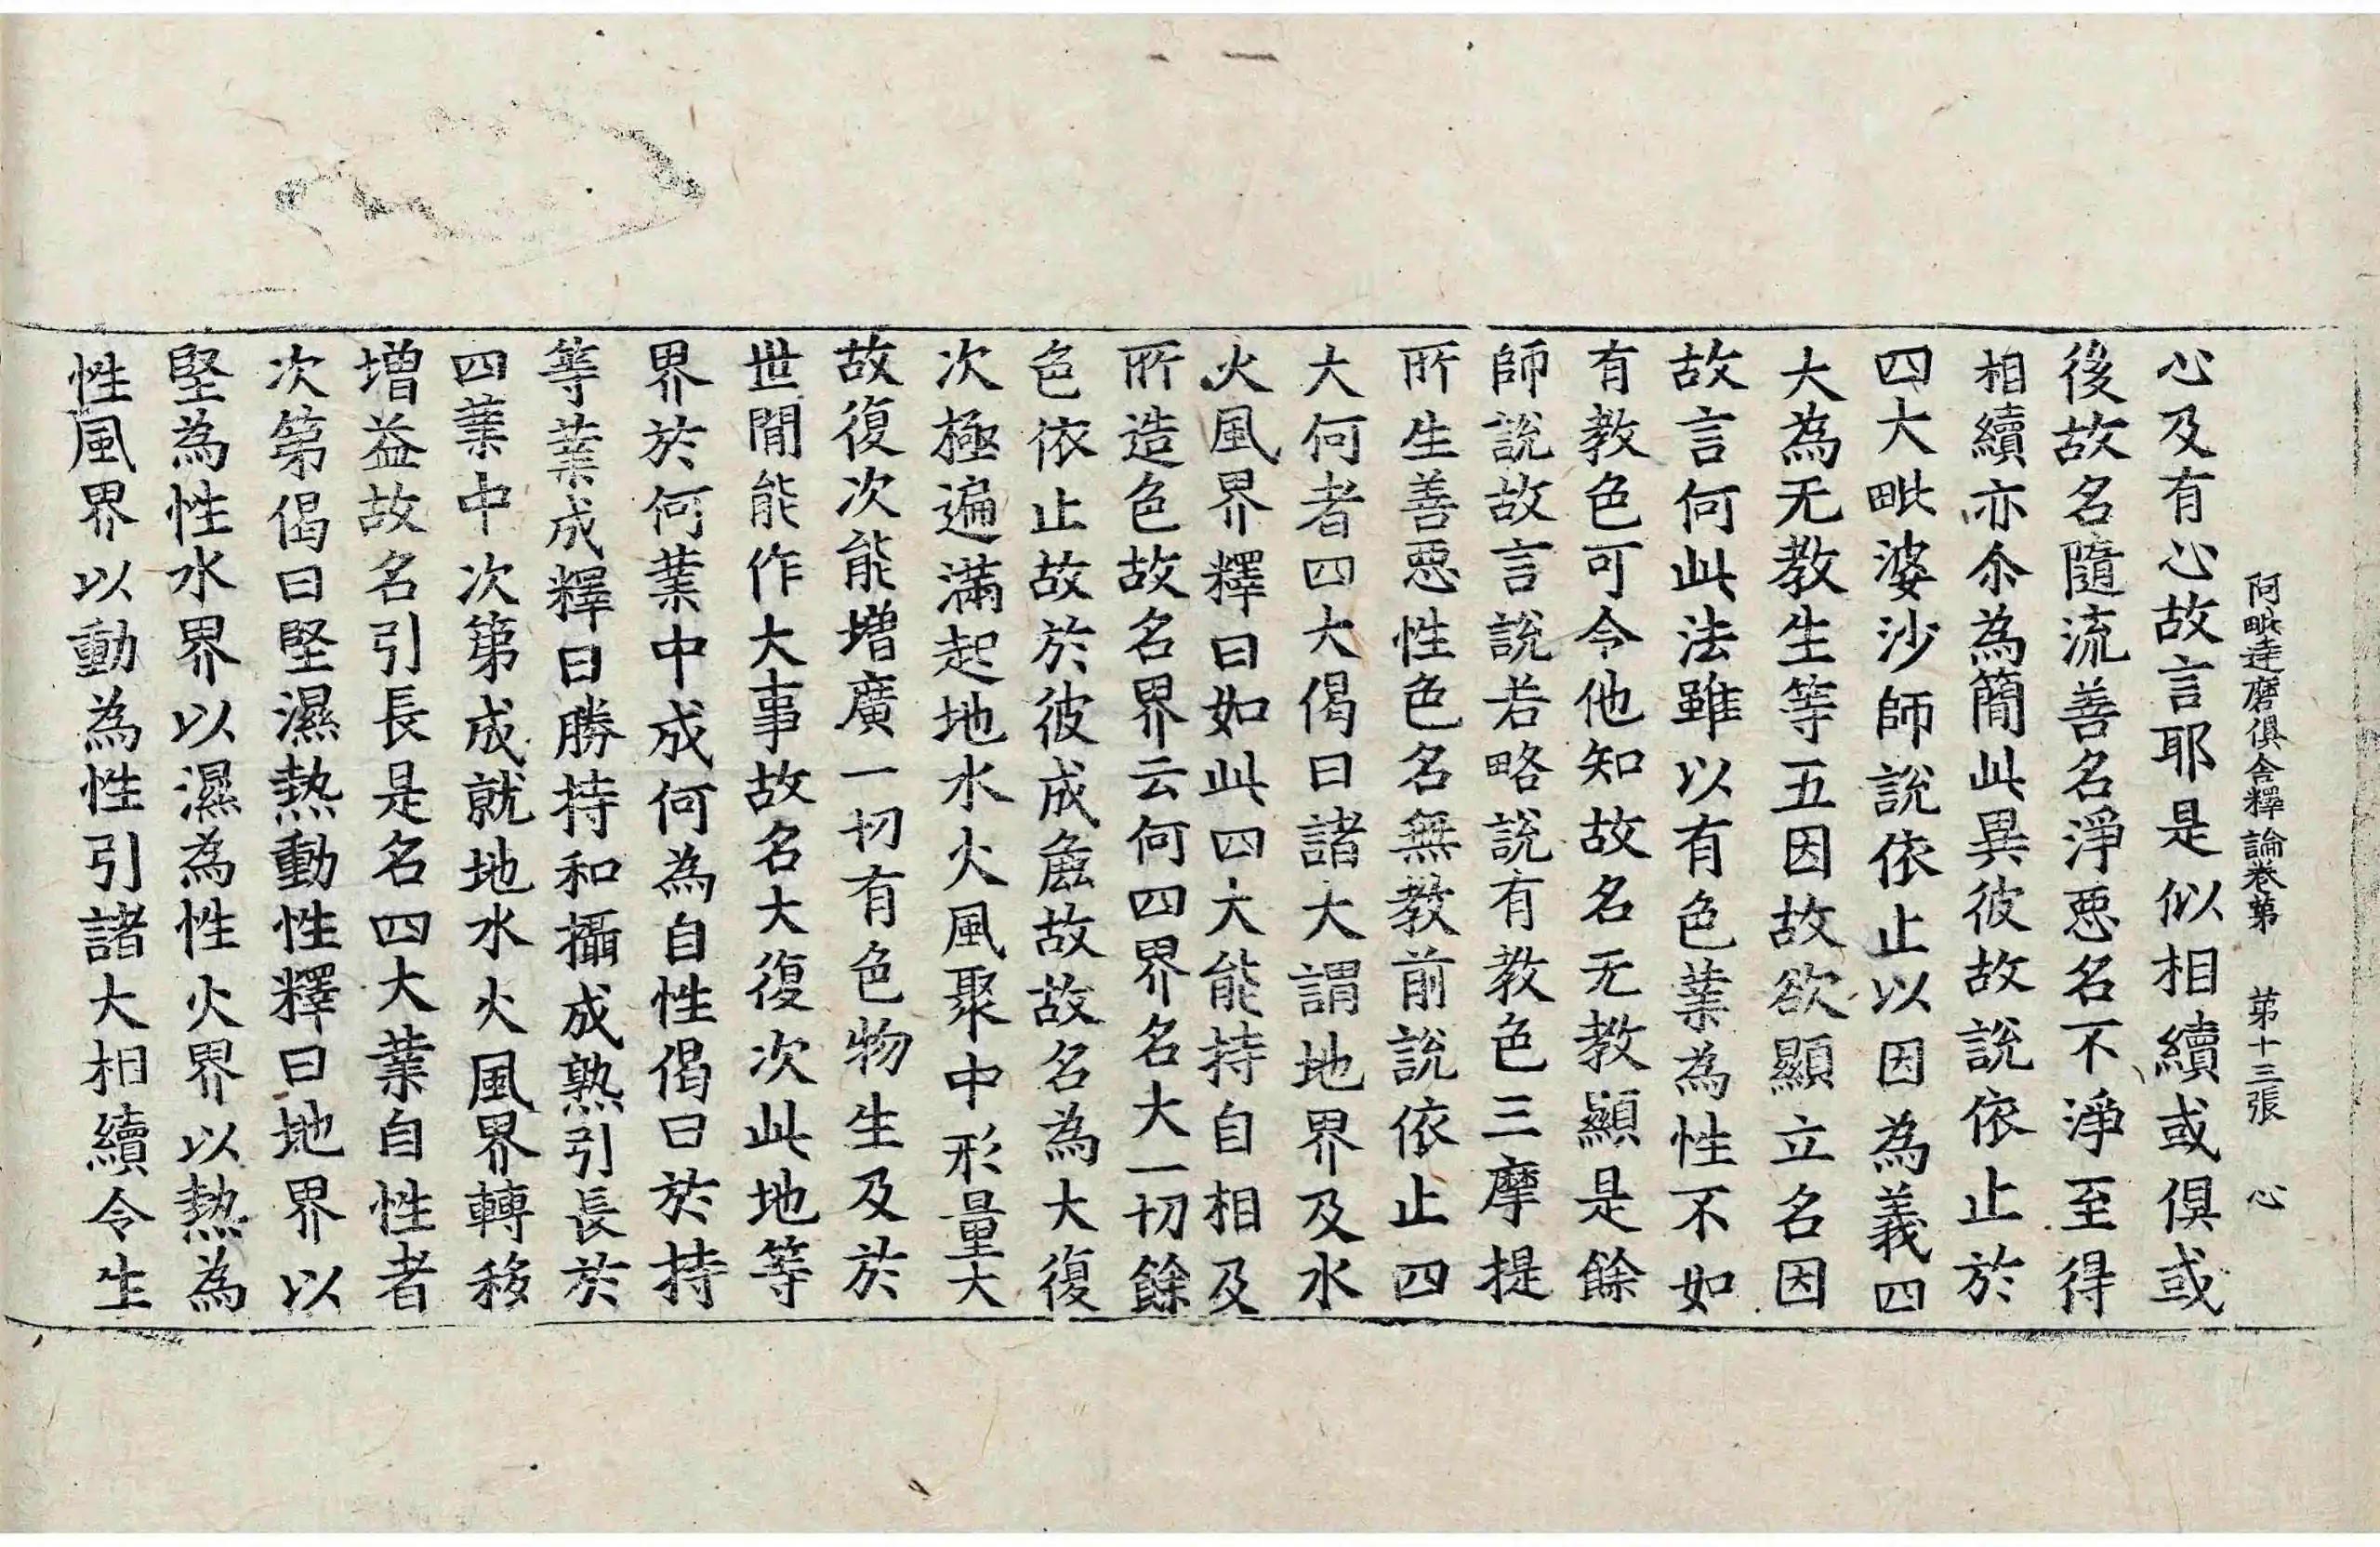 阿毗達磨俱舍釋論卷第 第十三張 心
心及有心故言耶是似相續或俱或
後故名隨流善名淨惡名不淨至得
相續亦尒為簡此異彼故說依止於
四大毗婆沙師說依止以因為義四
大為无教生等五因故欲顯立名因
故言何此法雖以有色業為性不如
有教色可令他知故名无教顯是餘
師說故言說若略說有教色三摩提
所生善惡性色名無教前說依止四
大何者四大偈曰諸大謂地界及水
火風界釋曰如此四大能持自相及
所造色故名界云何四界名大一切餘
色依止故於彼成麁故故名為大復
次極遍滿起地水火風聚中形量大
故復次能增廣一切有色物生及於
世間能作大事故名大復次此地等
界於何業中成何為自性偈曰於持
等業成釋曰勝持和攝成熟引長於
四業中次第成就地水火風界轉移
增益故名引長是名四大業自性者
次第偈曰堅濕熱動性釋曰地界以
堅為性水界以濕為性火界以熱為
性風界以動為性引諸大相續令生